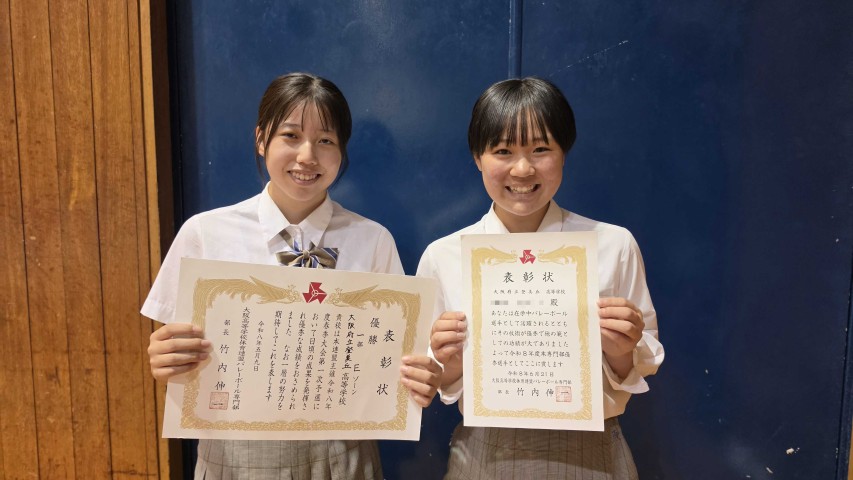 表彰状
優勝
一部 Eゾーン
大阪府立登美丘高等学校
貴校は本連盟主催令和八年
度春季大会第一次予選に
おいて日頃の成果を発揮さ
れ優秀な成績をおさめられ
ました なお一層の努力を
期待してこれを表します
令和八年五月九日
大阪高等学校体育連盟バレーボール専門部
部長 竹内伸一
表彰状
大阪府立登美丘 高等学校
殿
あなたは在学中バレーボール
選手として活躍されるととも
にその技術が優秀で他の範と
しての功績が大でありました
よって令和8年度本専門部優
秀選手としてここに表します
令和8年6月21日
大阪高等学校体育連盟バレーボール専門部
部長 竹内伸一